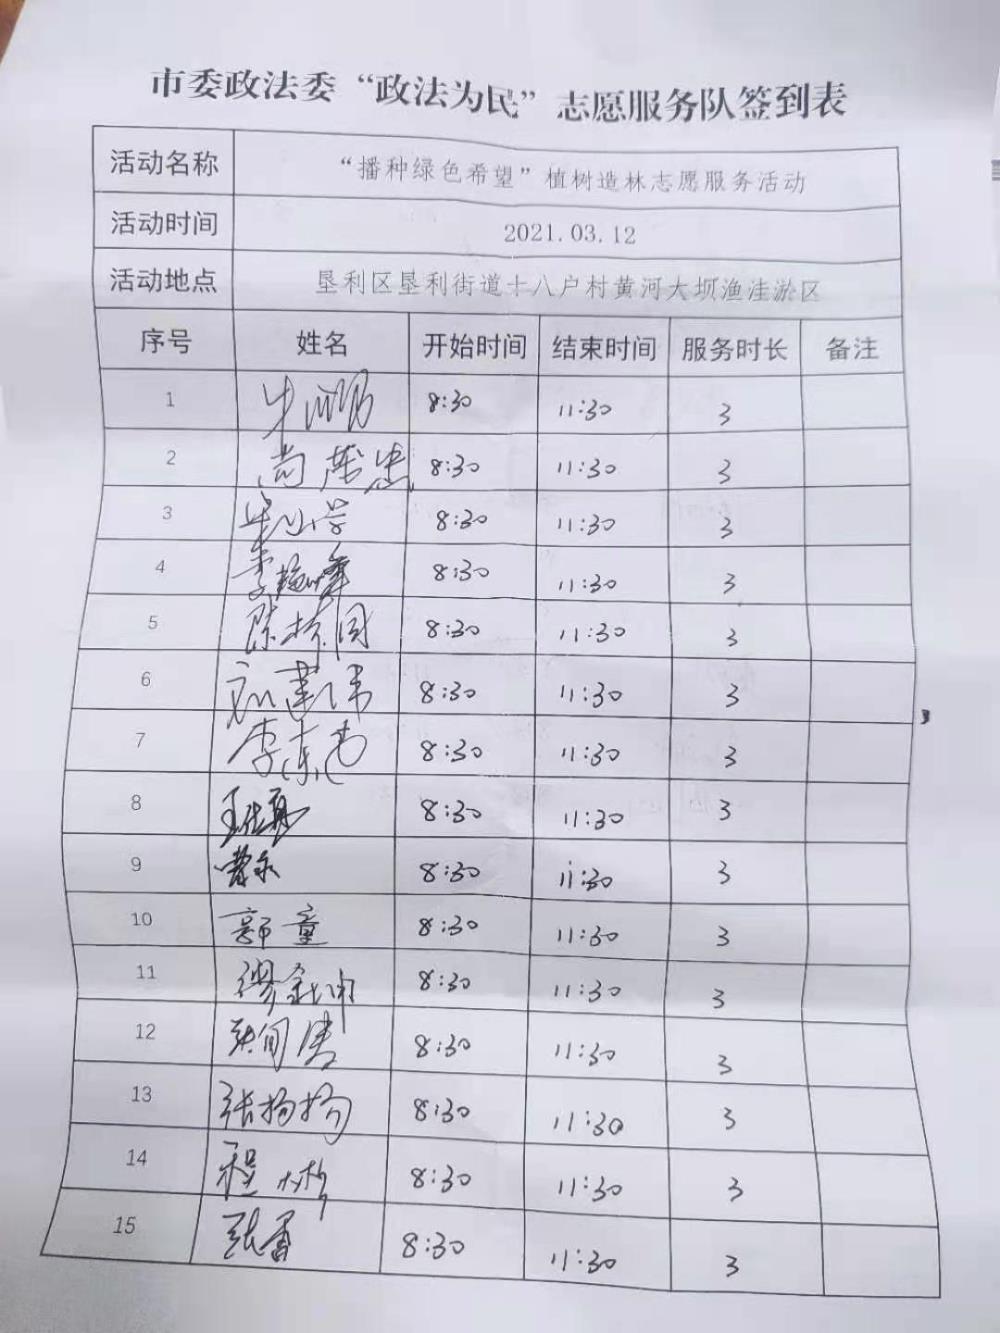 市委政法委“政法为民”志愿服务队签到表
活动名称 “播种绿色希望”植树造林志愿服务活动
活动时间 2021.03.12
活动地点 垦利区垦利街道十八户村黄河大坝渔洼淤区
序号 姓名 开始时间 结束时间 服务时长 备注
1 8:30 11:30 3
2 尚 忠 8:30 11:30 3
3 8:30 11:30 3
4 李 峰 8:30 11:30 3
5 陈 国 8:30 11:30 3
6 刘建伟 8:30 11:30 3
7 李东 8:30 11:30 3
8 王 8:30 11:30 3
9 8:30 11:30 3
10 郭童 8:30 11:30 3
11 8:30 11:30 3
12 张 8:30 11:30 3
13 张扬扬 8:30 11:30 3
14 程彬彬 8:30 11:30 3
15 张雷 8:30 11:30 3